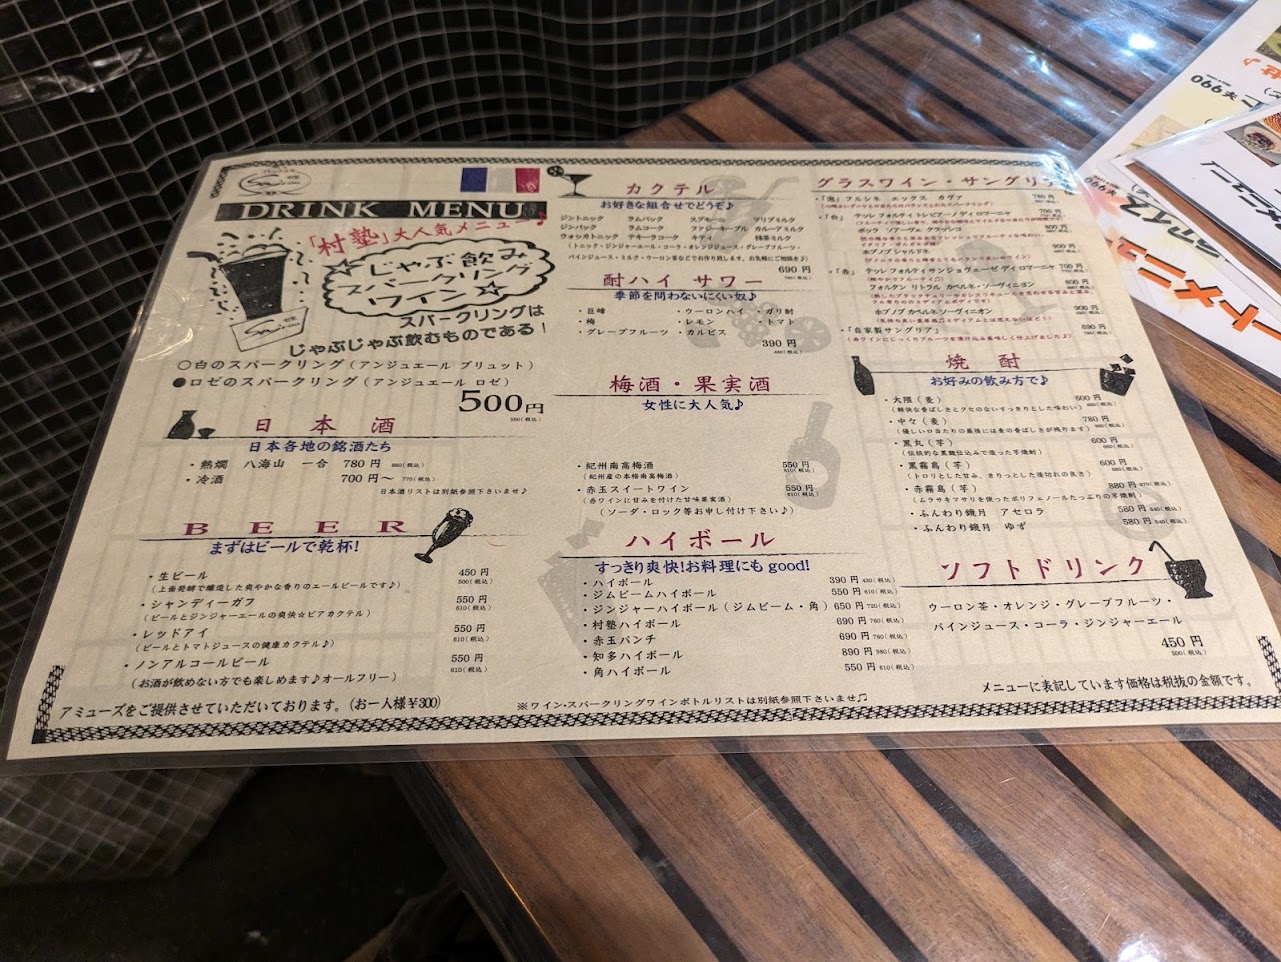 DRINK MENU
「村塾」大人気メニュー♪
☆じゃぶ飲み
スパークリング
ワイン☆
スパークリングは
じゃぶじゃぶ飲むものである!
○白のスパークリング(アンジュエール ブリュット)
●ロゼのスパークリング(アンジュエール ロゼ)
500円
550(税込)
日本酒
日本各地の銘酒たち
・熱燗 八海山 一合 780円 860(税込)
・冷酒 700円〜 770(税込)
日本酒リストは別紙参照下さいませ♪
BEER
まずはビールで乾杯!
・生ビール 450円
(上面発酵で醸造した爽やかな香りのエールビールです♪) 500(税込)
・シャンディーガフ 550円
(ビールとジンジャーエールの爽快☆ビアカクテル) 610(税込)
・レッドアイ 550円
(ビールとトマトジュースの健康カクテル♪) 610(税込)
・ノンアルコールビール 550円
(お酒が飲めない方でも楽しめます♪オールフリー) 610(税込)
アミューズをご提供させていただいております。(お一人様¥300)
カクテル
お好きな組合せでどうぞ♪
ジントニック ラムバック スプモーニ マリブミルク
ジンバック ラムコーク ファジーネーブル カルーアミルク
ウォッカトニック テキーラコーク キティ 抹茶ミルク
(トニック・ジンジャーエール・コーラ・オレンジジュース・グレープフルーツ・
パインジュース・ミルク・ウーロン茶などでお作り致します。お気軽にご相談を♪)
690円
760(税込)
酎ハイ サワー
季節を問わないにくい奴♪
・巨峰 ・ウーロンハイ ・ガリ酎
・梅 ・レモン ・トマト
・グレープフルーツ ・カルピス
390円
430(税込)
梅酒・果実酒
女性に大人気♪
・紀州南高梅酒 550円
(紀州産の本格南高梅酒) 610(税込)
・赤玉スイートワイン 550円
(赤ワインに甘みを付けた甘味果実酒) 610(税込)
(ソーダ・ロック等お申し付け下さい♪)
ハイボール
すっきり爽快!お料理にも good!
・ハイボール 390円 430(税込)
・ジムビームハイボール 550円 610(税込)
・ジンジャーハイボール(ジムビーム・角) 650円 720(税込)
・村塾ハイボール 690円 760(税込)
・赤玉パンチ 690円 760(税込)
・知多ハイボール 890円 980(税込)
・角ハイボール 550円 610(税込)
※ワイン・スパークリングワインボトルリストは別紙参照下さいませ♫
グラスワイン・サングリア
・「泡」フルシネ エックス ガヴァ
・「白」 テッレフォルティ トレビアーノ ディ ロマーニャ
ボッラ ソアーヴェ クラッシコ
ホブノブ シャルドネ
・「赤」 テッレ フォルティ サンジョヴェーゼ ディ ロマーニャ 700円
フォルゲン リトラル カベルネ・ソーヴィニヨン 800円
ホブノブ カベルネ ソーヴィニオン 900円
・「自家製サングリア」 690円
(赤ワインにじっくりフルーツを漬け込み美味しく仕上げました♪)
焼酎
お好みの飲み方で♪
・大隈(麦) 600円
(軽快な香ばしさとクセのないすっきりとした味わい)
・中々(麦) 780円
(優しい口当たりの最後には麦の香ばしさが残ります)
・黒丸(芋) 600円
(伝統的な黒麹仕込みで造った芋焼酎)
・黒霧島(芋) 600円
(トロリとした甘み、きりっとした後切れの良さ)
・赤霧島(芋) 880円
(ムラサキマサリを使ったポリフェノールたっぷりの芋焼酎)
・ふんわり鏡月 アセロラ 580円 640(税込)
・ふんわり鏡月 ゆず 580円 640(税込)
ソフトドリンク
ウーロン茶・オレンジ・グレープフルーツ・
パインジュース・コーラ・ジンジャーエール
450円
500(税込)
メニューに表記しています価格は税抜の金額です。